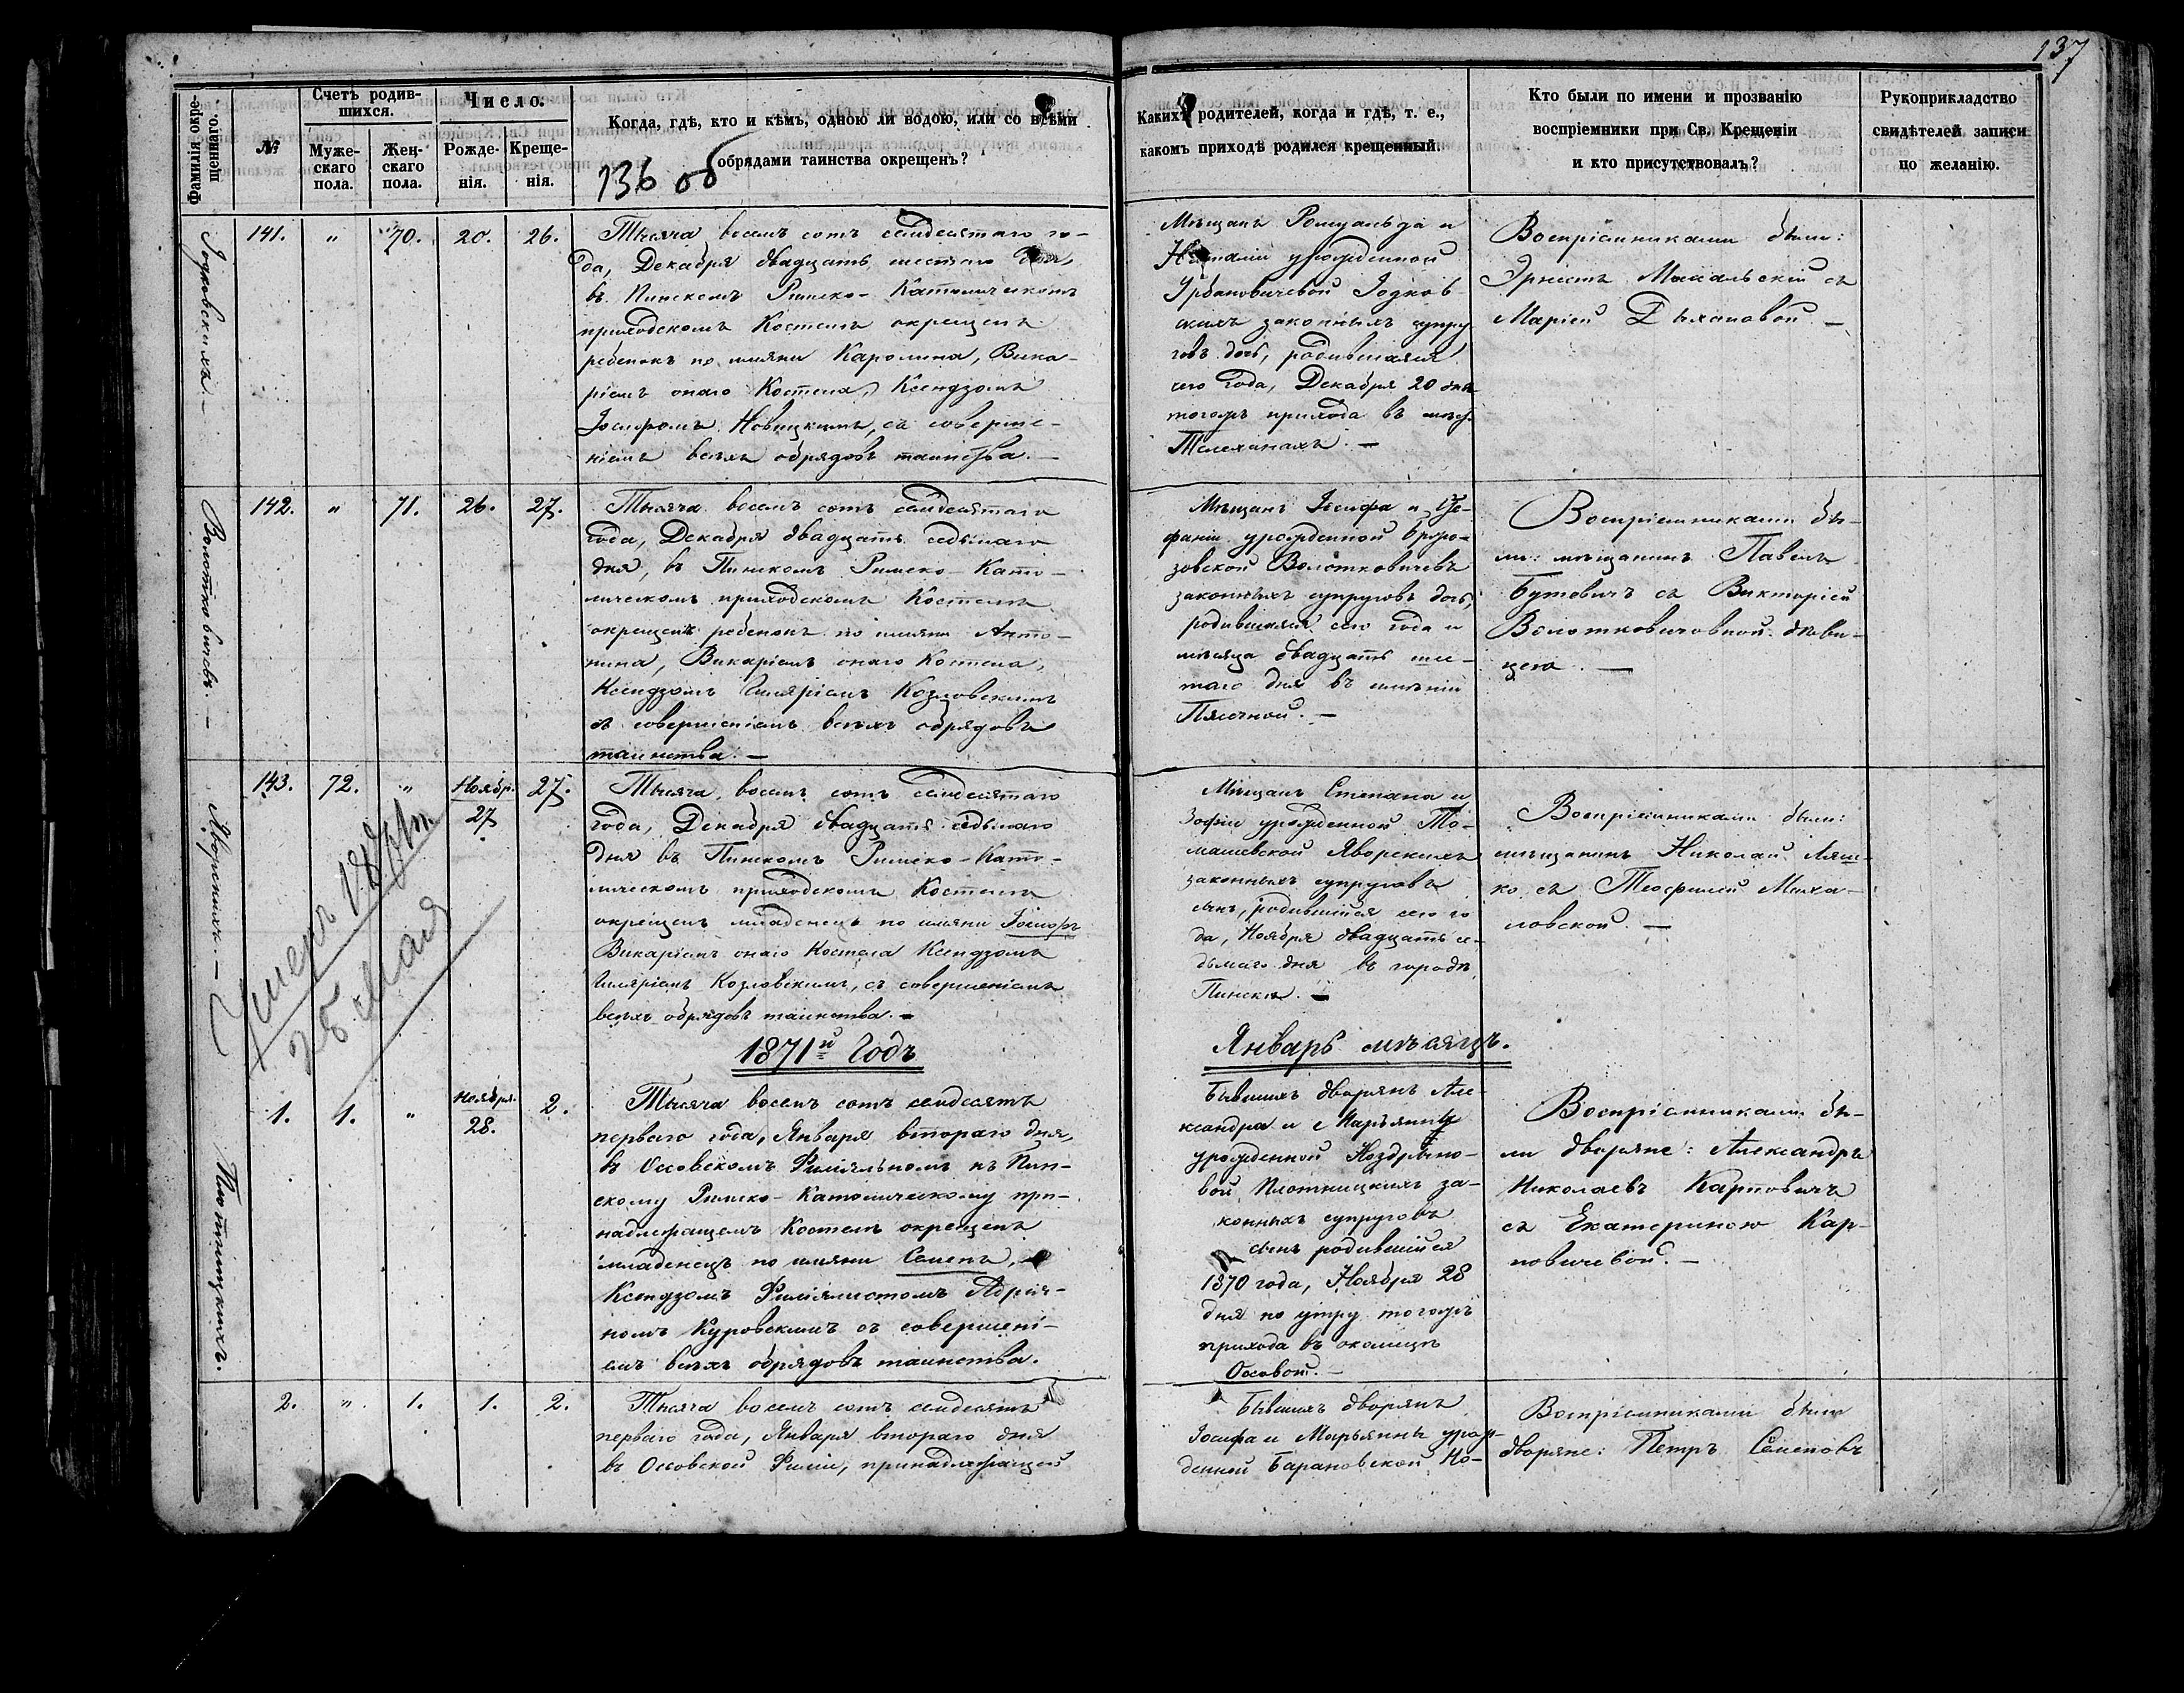 137
136 об
Фамилія окрещеннаго.
№
Счетъ родившихся.
Мужескаго пола.
Женскаго пола.
Число.
Рожденія.
Крещенія.
Когда, гдѣ, кто и кѣмъ, одною ли водою, или со всѣми
обрядами таинства окрещенъ?
Какихъ родителей, когда и гдѣ, т. е.,
какомъ приходѣ родился крещенный.
Кто были по имени и прозванію
воспріемники при Св. Крещеніи
и кто присутствовалъ?
Рукоприкладство
свидѣтелей записи
по желанію.
Іодковскихъ. —
141. " 70. 20. 26.
Тысяча восемъ сотъ семдесятаго го-
да, Декабря двадцать шестаго дня,
въ Пинскомъ Римско-Католическомъ
приходскомъ Костелѣ окрещенъ
ребенокъ по имяни Каролина, Вика-
ріемъ онаго Костела, Ксендзомъ
Іосифомъ Новицкимъ, съ соверше-
ніемъ всѣхъ обрядовъ таинства. —
Мѣщанъ Ромуальда и
Наталіи урожденной
Урбановичевой Іодков-
скихъ законныхъ супру
говъ дочь, родившаяся
сего года, Декабря 20 дня
тогожъ прихода въ мѣст.
Телеханахъ. —
Воспріемниками были:
Эрнестъ Махальскій съ
Маріей —
Волотковичевъ. —
142. " 71. 26. 27.
Тысяча восемъ сотъ семдесятаго
года, Декабря двадцать седьмаго
дня, въ Пинскомъ Римско-Като-
лическомъ приходскомъ Костелѣ
окрещенъ ребенокъ по имяни Анто-
нина, Викаріемъ онаго Костела,
Ксендзомъ Иляріемъ Козловскимъ
съ совершеніемъ всѣхъ обрядовъ
таинства. —
Мѣщанъ Іосифа и Сте-
фаніи урожденной
Волотковичевъ
законныхъ супруговъ дочь,
родившаяся сего года и
мѣсяца двадцать шес-
таго дня въ имѣніи
Плесчной. —
Воспріемниками бы-
ли: мѣщанинъ Павелъ
Бутовичъ съ Викторіей
Волотковичовной дѣви-
цею. —
Яворскихъ. —
143. 72. " Ноябр. 27 27.
Умеръ 1871 г.
25 Мая
Тысяча восемъ сотъ семдесятаго
года, Декабря двадцать седьмаго
дня въ Пинскомъ Римско-Като-
лическомъ приходскомъ Костелѣ
окрещенъ младенецъ по имяни Іосифъ
Викаріемъ онаго Костела Ксендзомъ
Иляріемъ Козловскимъ, съ совершеніемъ
всѣхъ обрядовъ таинства. —
Мѣщанъ Степана и
Зофіи урожденной То-
машевской Яворскихъ
законныхъ супруговъ
сынъ, родившійся сего го
да, Ноября двадцать се-
дьмаго дня въ городѣ
Пинскѣ. —
Воспріемниками были:
мѣщанинъ Николай Ляш-
ко съ Теофилей Миха-
ловской. —
1871й Годъ
Январь мѣсяцъ.
Плотницкихъ.
1. 1. " Ноября. 28. 2.
Тысяча восемъ сотъ семдесятъ
перваго года, Января втораго дня,
въ Оссовскомъ Филіяльномъ къ Пин-
скому Римско-Католическому при-
надлежащемъ Костелѣ окрещенъ
младенецъ по имяни Семенъ,
Ксендзомъ Филіялистомъ Адрія-
номъ Куровскимъ съ совершені-
емъ всѣхъ обрядовъ таинства.
Бывшихъ дворянъ Але-
ксандра и Марьянны
урожденной Ноздрыно-
вой Плотницкихъ за-
конныхъ супруговъ
сынъ родившійся
1870 года, Ноября 28
дня по утру тогожъ
прихода въ околицѣ
Оссовой. —
Воспріемниками бы-
ли дворяне: Александръ
Николаевъ Карповичъ
съ Екатериною Кар-
повичевой. —
2. " 1. 1. 2.
Тысяча восемъ сотъ семдесятъ
перваго года, Января втораго дня
въ Оссовской Филіи, принадлежащей
Бывшихъ дворянъ
Іосифа и Марьянны урож-
денной Барановской Но-
Воспріемниками были
дворяне: Петръ Семеновъ